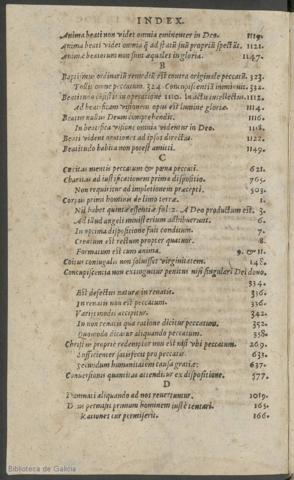 INDEX.
Anima beati non videt omnia eminenter in Deo. 1119.
Anima beati videt omnia q̃ ad statũ suũ propriũ spectãt. 1121.
Animæ beatorum non sunt æquales in gloria. 1147.
B
Baptismus ordinariũ remediũ est contra originale peccatũ. 323.
Tollit omne peccatum. 324. Concupiscentiã imminuit. 332.
Beatitudo consistit in operatione 1110. In actu intellectus. 1112.
Ad beatificam visionem opus est lumine gloriæ. 1114.
Beatus nullus Deum comprehendit. 1116.
In beatifica visione omnia videntur in Deo. 1118.
Beati vident orationes ad ipsos directas. 1122.
Beatitudo habita non potest amitti. 1149.
C
Cæcitas mentis peccatum & pœna peccati. 621.
Charitas ad iustificationem prima dispositio. 765.
Non requiritur ad impletionem præcepti. 503.
Corpus primi hominis de limo terræ. 1.
Nil habet quintæ essentiæ fol. 2. A Deo productum est. 3.
Ad illud angeli ministerium adhibuerunt. 6.
In optima dispositione fuit conditum. 7.
Creatum est rectum propter quatuor. 8.
Formatum est cum anima. 9. & 11.
Coitus coniugalis non solvisset virginitatem. 148.
Concupiscentia non extinguitur penitus nisi singulari Dei dono.
334.
Est defectus naturæ in renatis. 316.
In renatis non est peccatum. 336.
Varijs modis accipitur. 342.
In non renatis qua ratione dicitur peccatum. 352.
Quomodo dicatur aliquando peccatum. 358.
Christus proprie redemptor non est nisi vbi peccatum. 269.
Sufficienter satisfecit pro peccatis. 631.
Secundum humanitatem causa gratiæ. 637.
Conversionis quantitas attenditur ex dispositione. 577.
D
Damnati aliquando ad nos revertuntur. 1089.
Deus permisit primum hominem iustè tentari. 165.
Rationes cur permiserit. 166.
Biblioteca de Galicia